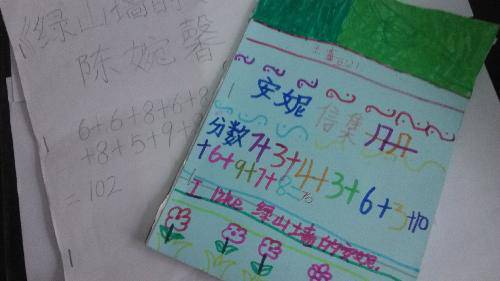 《绿山墙的
陈婉馨
6+6+8+6+8
+8+5+9+
=102
安妮 信集
分数7+3+4+3+6+3+10
+6+9+7+8=
I like 绿山墙的安妮.